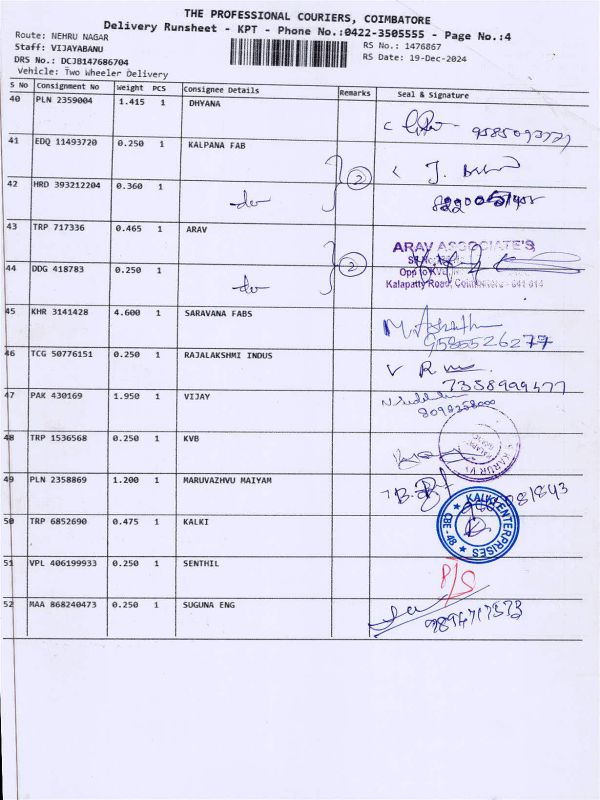 THE PROFESSIONAL COURIERS, COIMBATORE
Delivery Runsheet - KPT - Phone No.:0422-3505555 - Page No.:4
Route: NEHRU NAGAR
RS No.: 1476867
Staff: VIJAYABANU
RS Date: 19-Dec-2024
DRS No.: DCJB147686704
Vehicle: Two Wheeler Delivery
S No Consignment No Weight PCS Consignee Details Remarks Seal & Signature
40 PLN 2359004 1.415 1 DHYANA
41 EDQ 11493720 0.250 1 KALPANA FAB
2
42 HRD 393212204 0.360 1 do
43 TRP 717336 0.465 1 ARAV ARAV ASSOCIATE'S
2
44 DDG 418783 0.250 1 do Kalapatty Road,
45 KHR 3141428 4.600 1 SARAVANA FABS
9585526277
46 TCG 50776151 0.250 1 RAJALAKSHMI INDUS
7358999477
47 PAK 430169 1.950 1 VIJAY
8098258000
48 TRP 1536568 0.250 1 KVB
49 PLN 2358869 1.200 1 MARUVAZHVU MAIYAM
50 TRP 6852690 0.475 1 KALKI KALKI ENTERPRISES CBE-48
51 VPL 406199933 0.250 1 SENTHIL P/S
52 MAA 868240473 0.250 1 SUGUNA ENG
9894717373